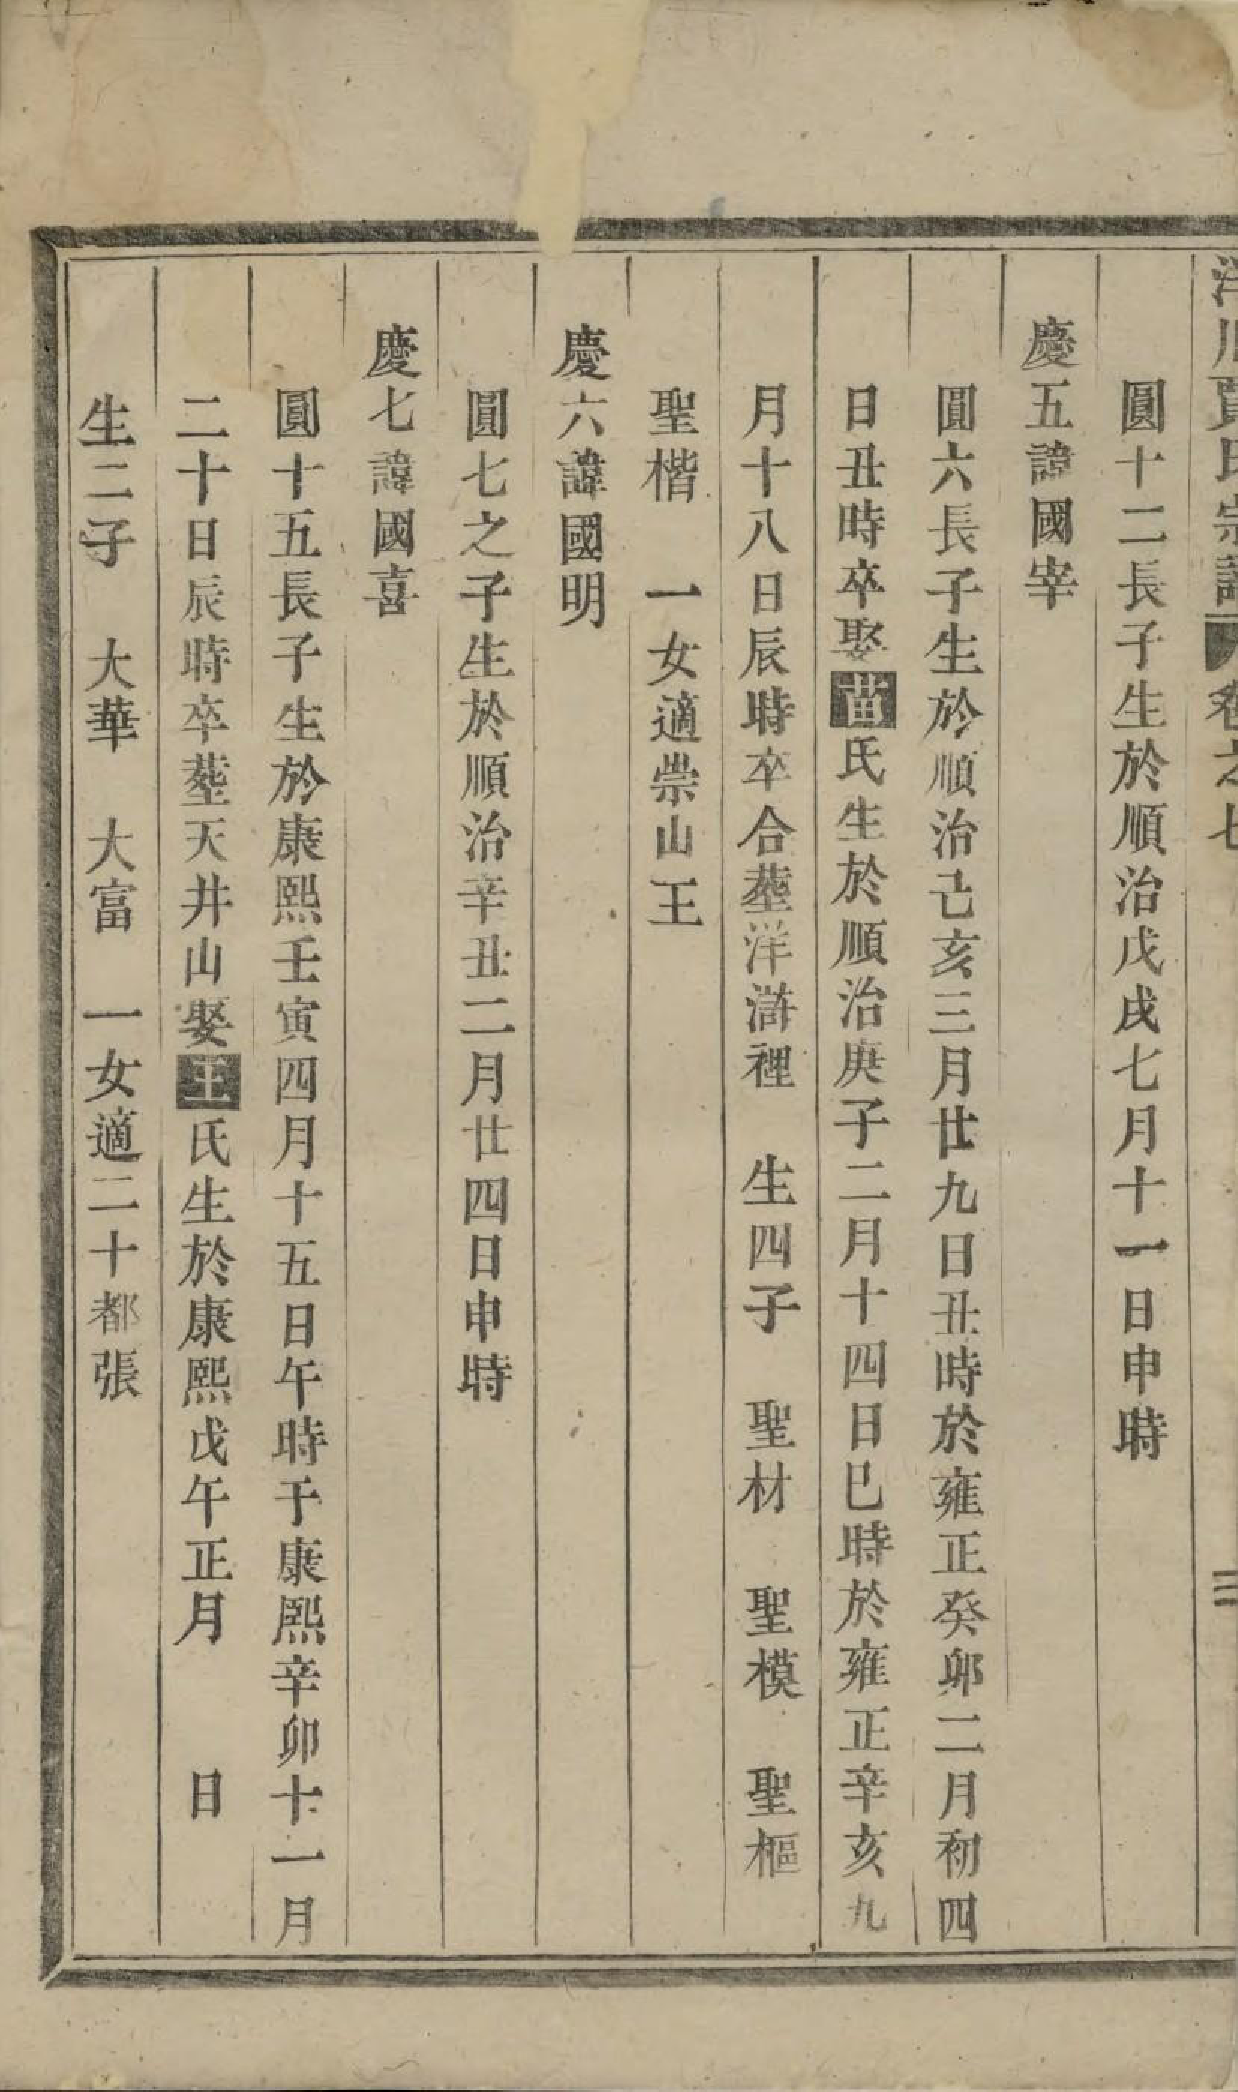 洋川賈氏宗譜 卷之七 三
圓十二長子生於順治戊戌七月十一日申時
慶五諱國宰
圓六長子生於順治己亥三月廿九日丑時於雍正癸卯二月初四
日丑時卒娶苗氏生於順治庚子二月十四日巳時於雍正辛亥九
月十八日辰時卒合塟洋滸裡 生四子 聖材 聖模 聖樞
聖楷 一女適崇山王
慶六諱國明
圓七之子生於順治辛丑二月廿四日申時
慶七諱國喜
圓十五長子生於康熙壬寅四月十五日午時于康熙辛卯十一月
二十日辰時卒塟天井山娶王氏生於康熙戊午正月 日
生二子 大華 大富 一女適二十都張